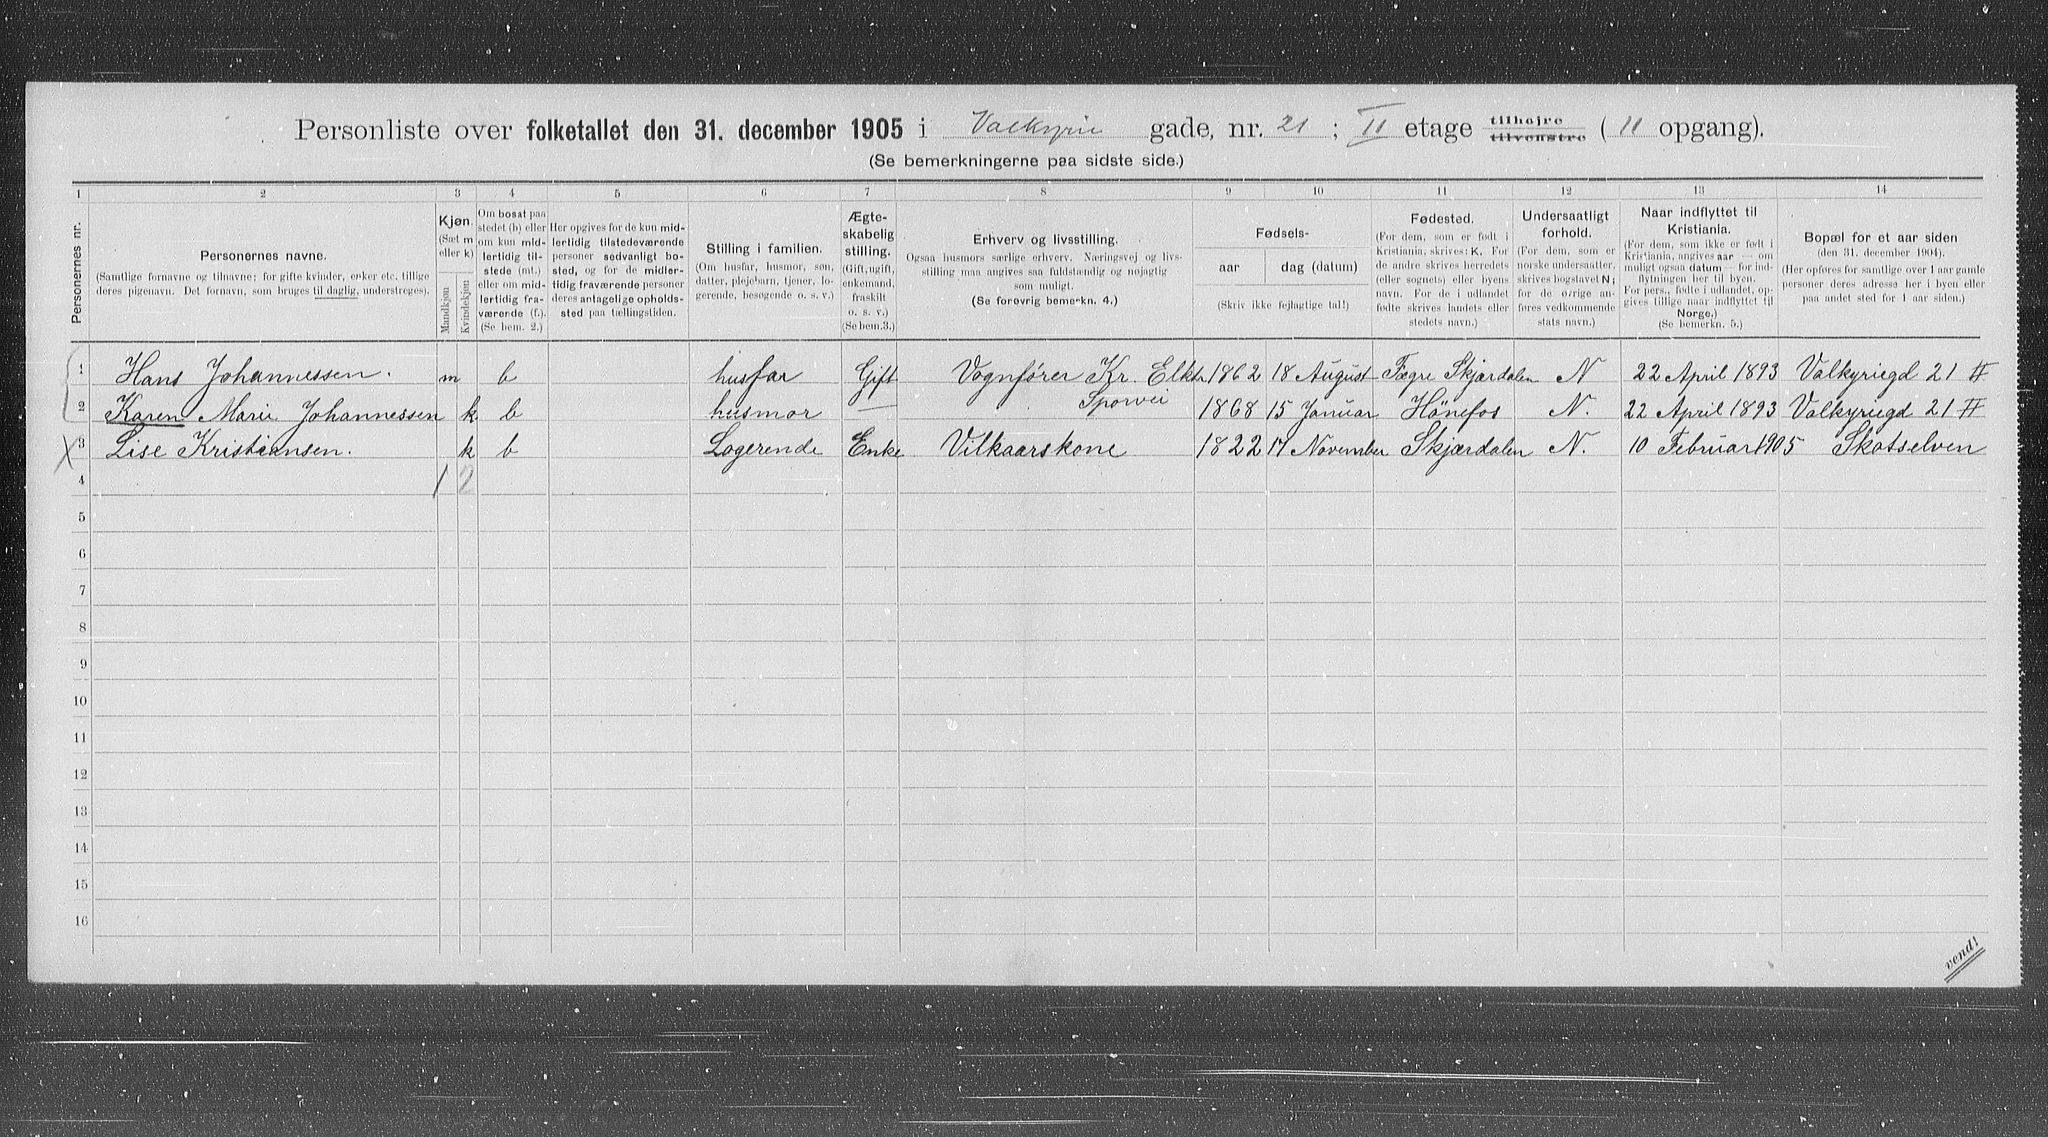 Personliste over folketallet den 31. december 1905 i Valkyrie gade, nr. 21 ; II etage tilhøjre tilvenstre ( 11 opgang).
(Se bemerkningerne paa sidste side.)
1 2 3 4 5 6 7 8 9 10 11 12 13 14
Personernes nr.
Personernes navne.
(Samtlige fornavne og tilnavne; for gifte kvinder, enker etc. tillige
deres pigenavn. Det fornavn, som bruges til daglig, understreges).
Kjøn.
(Sæt m
eller k)
Mandkjøn
Kvindekjøn
Om bosat paa
stedet (b) eller
om kun mid-
lertidig til-
stede (mt.)
eller om mid-
lertidig fra-
værende (f.).
(Se bem. 2.)
Her opgives for de kun mid-
lertidig tilstedeværende
personer sedvanlig bo-
sted, og for de midler-
tidig fraværende personer
deres antagelige opholds-
sted paa tællingstiden.
Stilling i familien.
(Om husfar, husmor, søn,
datter, plejebarn, tjener, lo-
gerende, besøgende o. s. v.)
Ægte-
skabelig
stilling.
(Gift, ugift,
enkemand,
fraskilt
o. s. v.)
(Se bem.3.)
Erhverv og livsstilling.
Ogsaa husmors særlige erhverv. Næringsvej og livs-
stilling maa angives saa fuldstændig og nøjagtig
som muligt.
(Se forøvrig bemerkn. 4.)
Fødsels-
aar
dag (datum)
(Skriv ikke fejlagtige tal!)
Fødested.
(For dem, som er født i
Kristiania, skrives: K. For
de andre skrives herredets
(eller sognets) eller byens
navn. For de i udlandet
fødte skrives landets eller
stedets navn.)
Undersaatligt
forhold.
(For dem, som er
norske undersaatter,
skrives bogstavet N;
for de øvrige an-
føres vedkommende
stats navn.)
Naar indflyttet til
Kristiania.
(For dem, som ikke er født i
Kristiania, angives aar — om
muligt ogsaa datum — for ind-
flytningen her til byen.
For pers., fødte i udlandet, op-
gives tillige naar indflyttet til
Norge.)
(Se bemerkn. 5.)
Bopæl for et aar siden
(den 31. december 1904).
(Her opføres for samtlige over 1 aar gamle
personer deres adresse her i byen eller
paa andet sted for 1 aar siden.)
1 Hans Johannessen. m b husfar Gift Vognfører Kr. Elktr. Sporvei 1862 18 August Fægre Skjærdalen N 22 April 1893 Valkyriegd 21 II
2 Karen Marie Johannessen k b husmor — 1868 15 Januar Hønefos N. 22 April 1893 Valkyriegd 21 II
X 3 Lise Kristiansen. k b Logerende Enke Vilkaarskone 1822 17 November Skjærdalen N. 10 Februar 1905 Skotselven
4 1 2
5
6
7
8
9
10
11
12
13
14
15
16
vend!